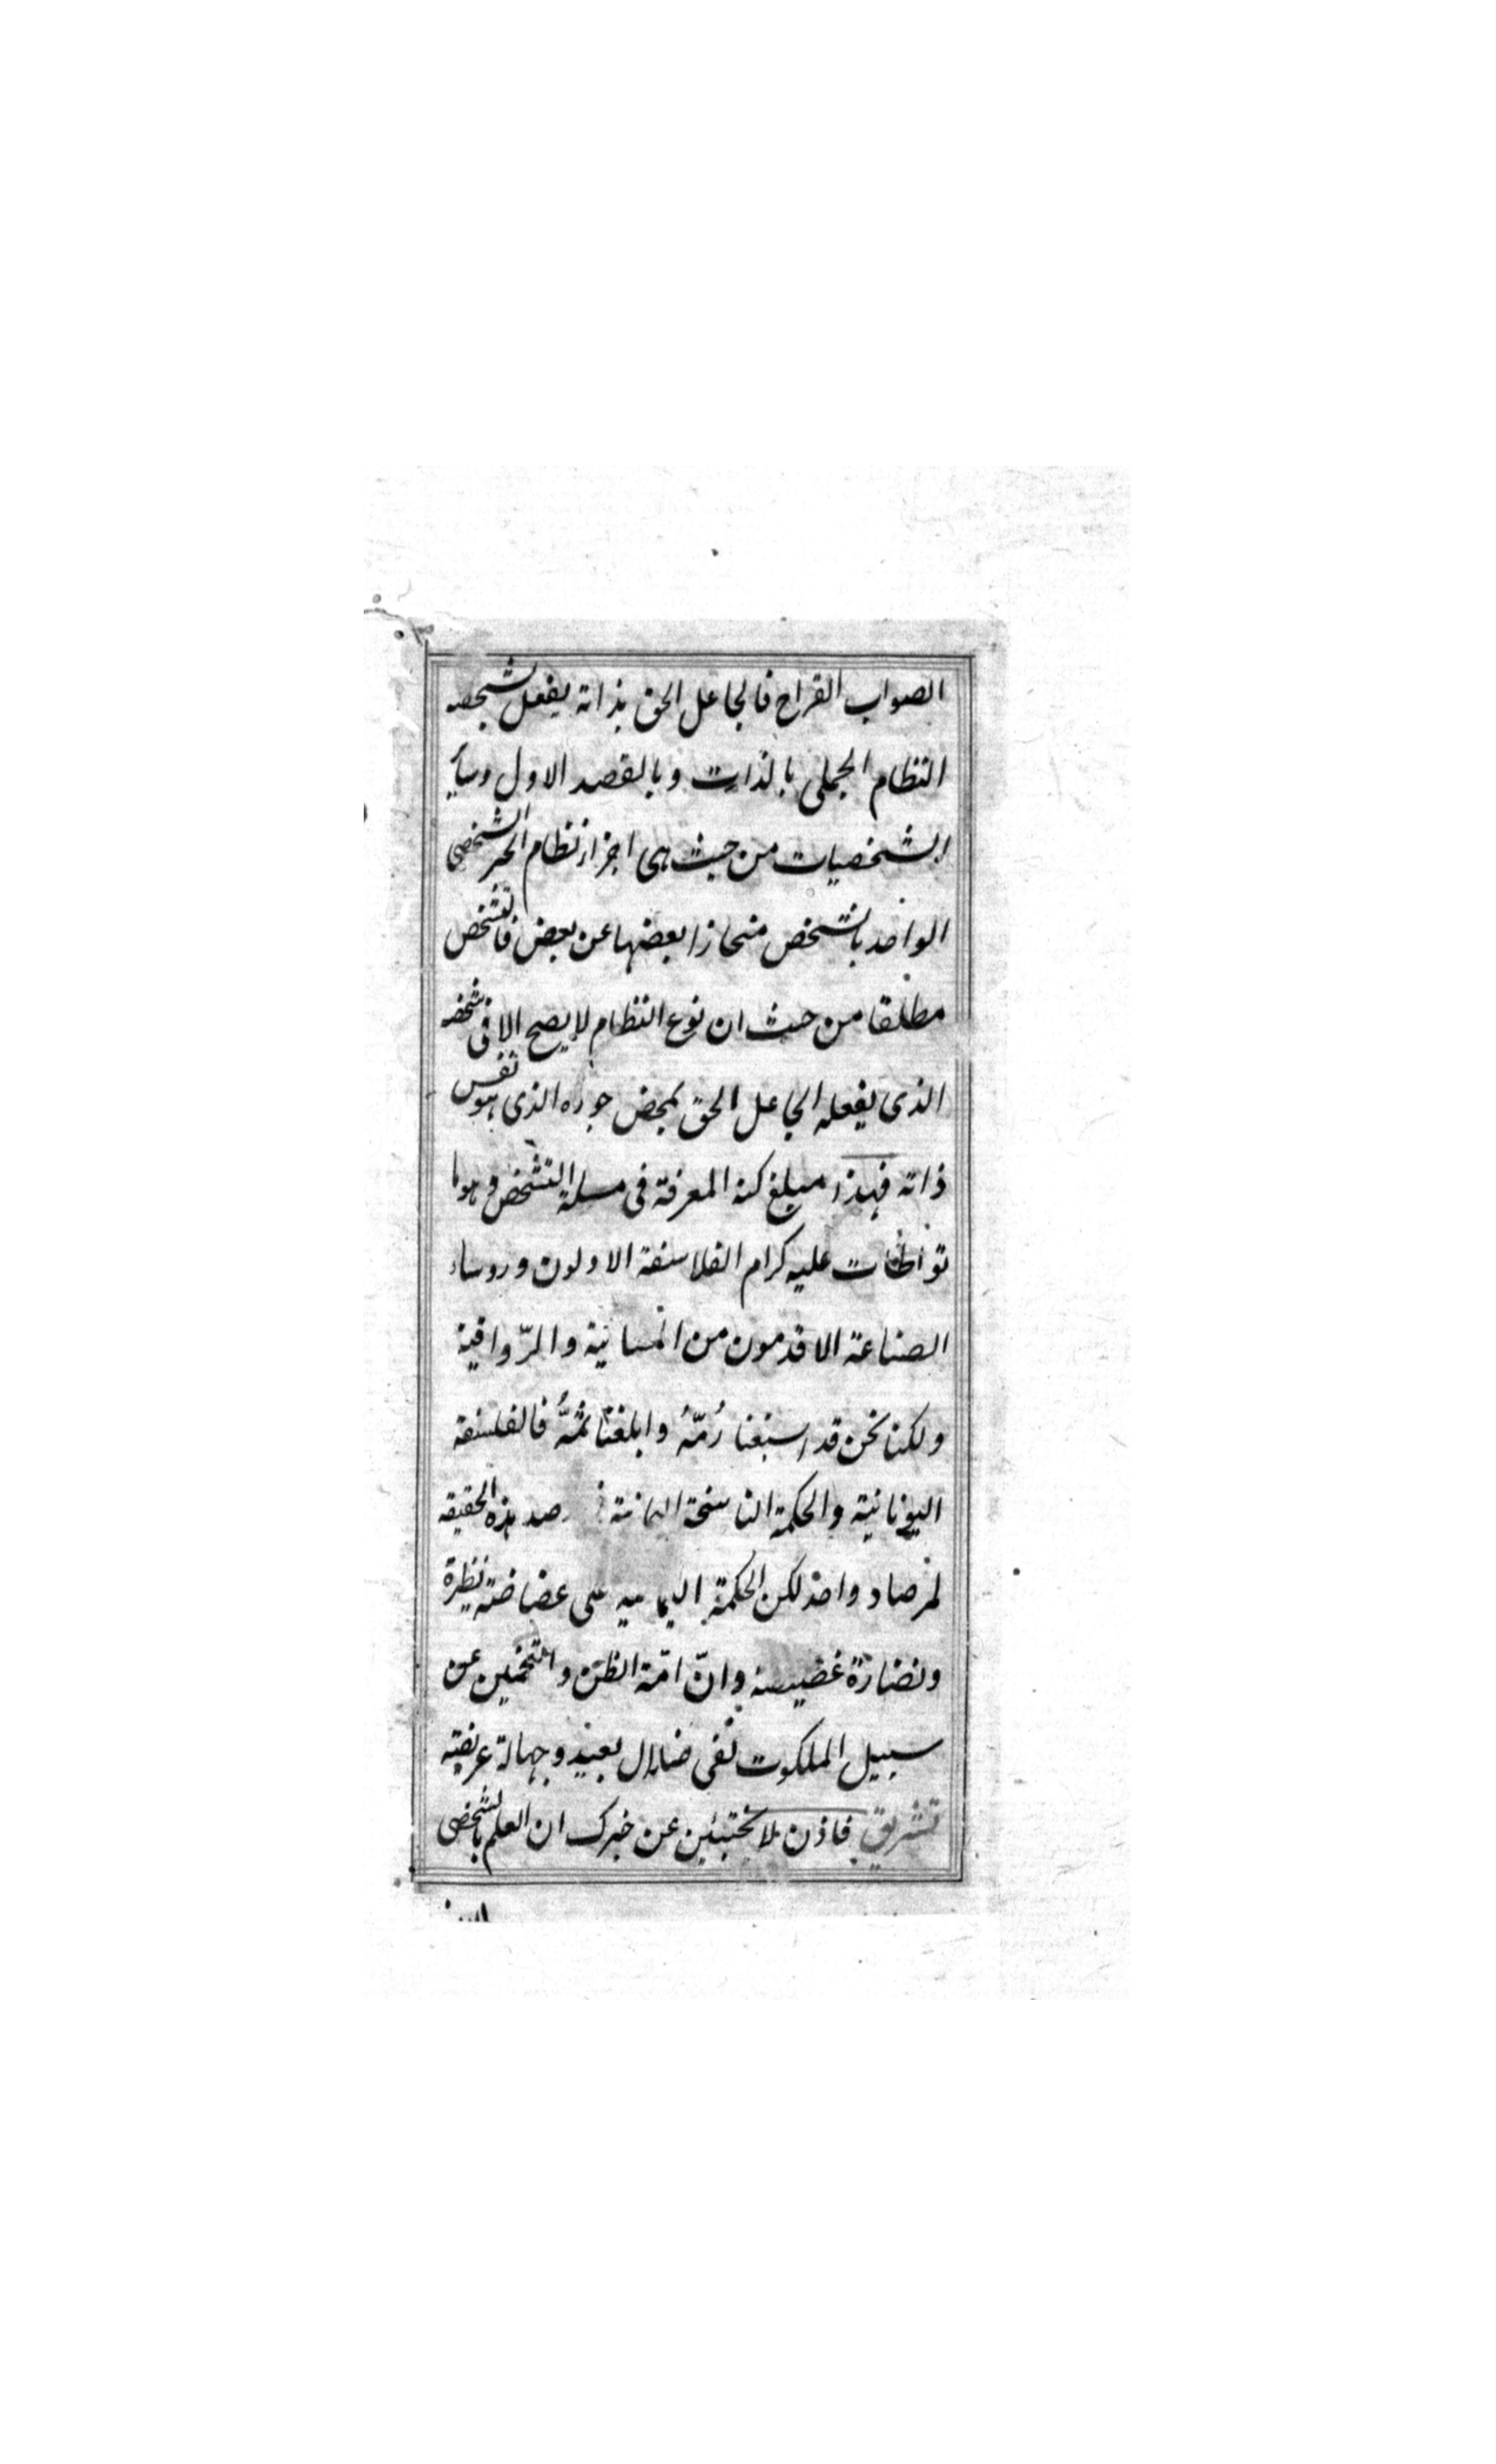 الصواب القراح فالجاعل الحق بذاته يفعل شخصه
النظام الجملى بالذات وبالقصد الاول وساير
الشخصيات من حيث هى اجزاء نظام الخير الشخصى
الواحد بالشخص منحازا بعضها عن بعض فالتشخص
مطلقا من حيث ان نوع النظام لا يصح الا فى شخصه
الذى يفعله الجاعل الحق بمحض جوده الذى هو نفس
ذاته فهذا مبلغ كنه المعرفة فى مسلة التشخص وهو ما
تواطات عليه كرام الفلاسفة الاولون وروساء
الصناعة الاقدمون من المشائية والرّواقية
ولكنا نحن قد اسبغنا رُمّهُ وابلغنا ثمَّهُ فالفلسفة
اليونانية والحكمة الناسخة اليمانية رصد هذه الحقيقه
لمرصاد واحد لكن الحكمة اليمانيه على غضاضته نظرة
ونضارة غضيضة وانّ امّة الظن والتخمين عن
سبيل الملكوت لفى ضلال بعيد وجهالة عريضه
تشريق فاذن لا تختبئن عن خبرك ان العلم بالشخصى